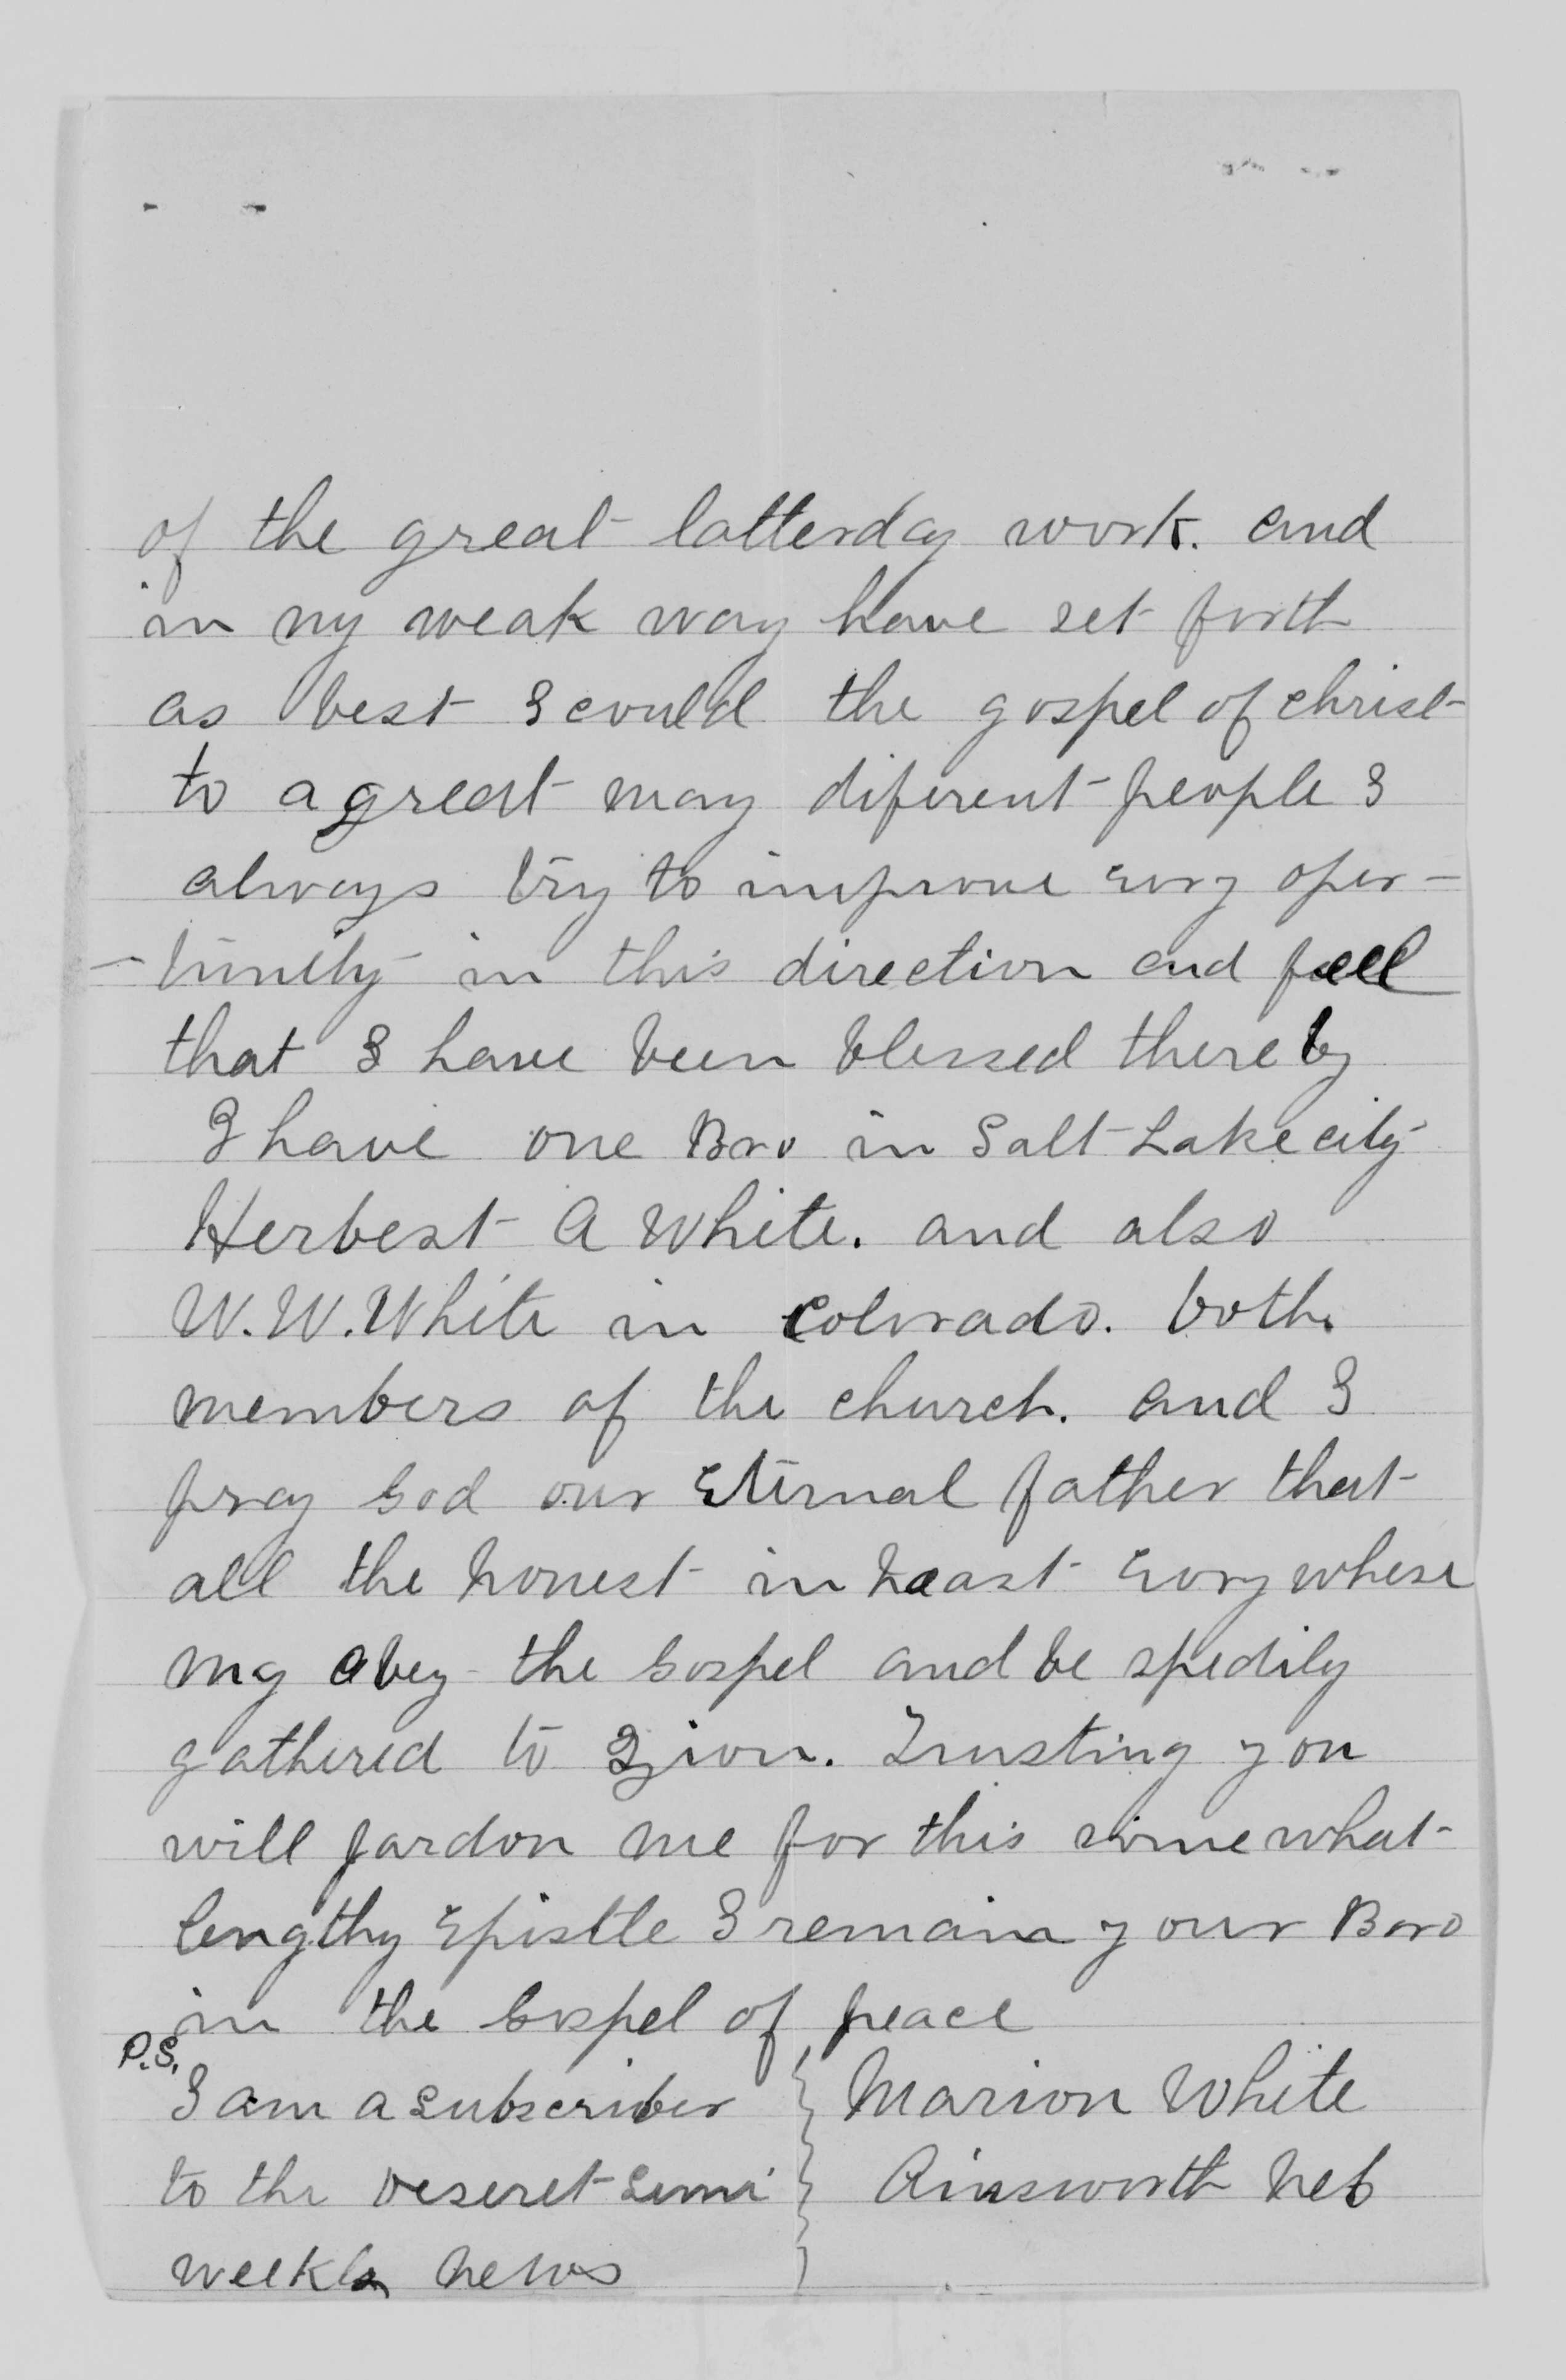 of the great latterday work. and
in ny weak way have set forth
as best I could the gospel of christ
to a great may diferent people I
always try to improve evry oper-
-tunity in this direction and feel
that I have been blessed there by
I have one Bro in Salt Lake city
Herbert A White. and also
W. W. White in Colorado. both
members of the church. and I
pray God our Eternal father that
all the honest in heart evry where
my obey the Gospel and be spedily
gathered to Zion. Trusting you
will pardon me for this somewhat
lengthy Epistle I remain your Bro
in the Gospel of peace
Marion White
Ainsworth Neb
P.S.
I am a subscriber
to the Deseret Semi
weekly News